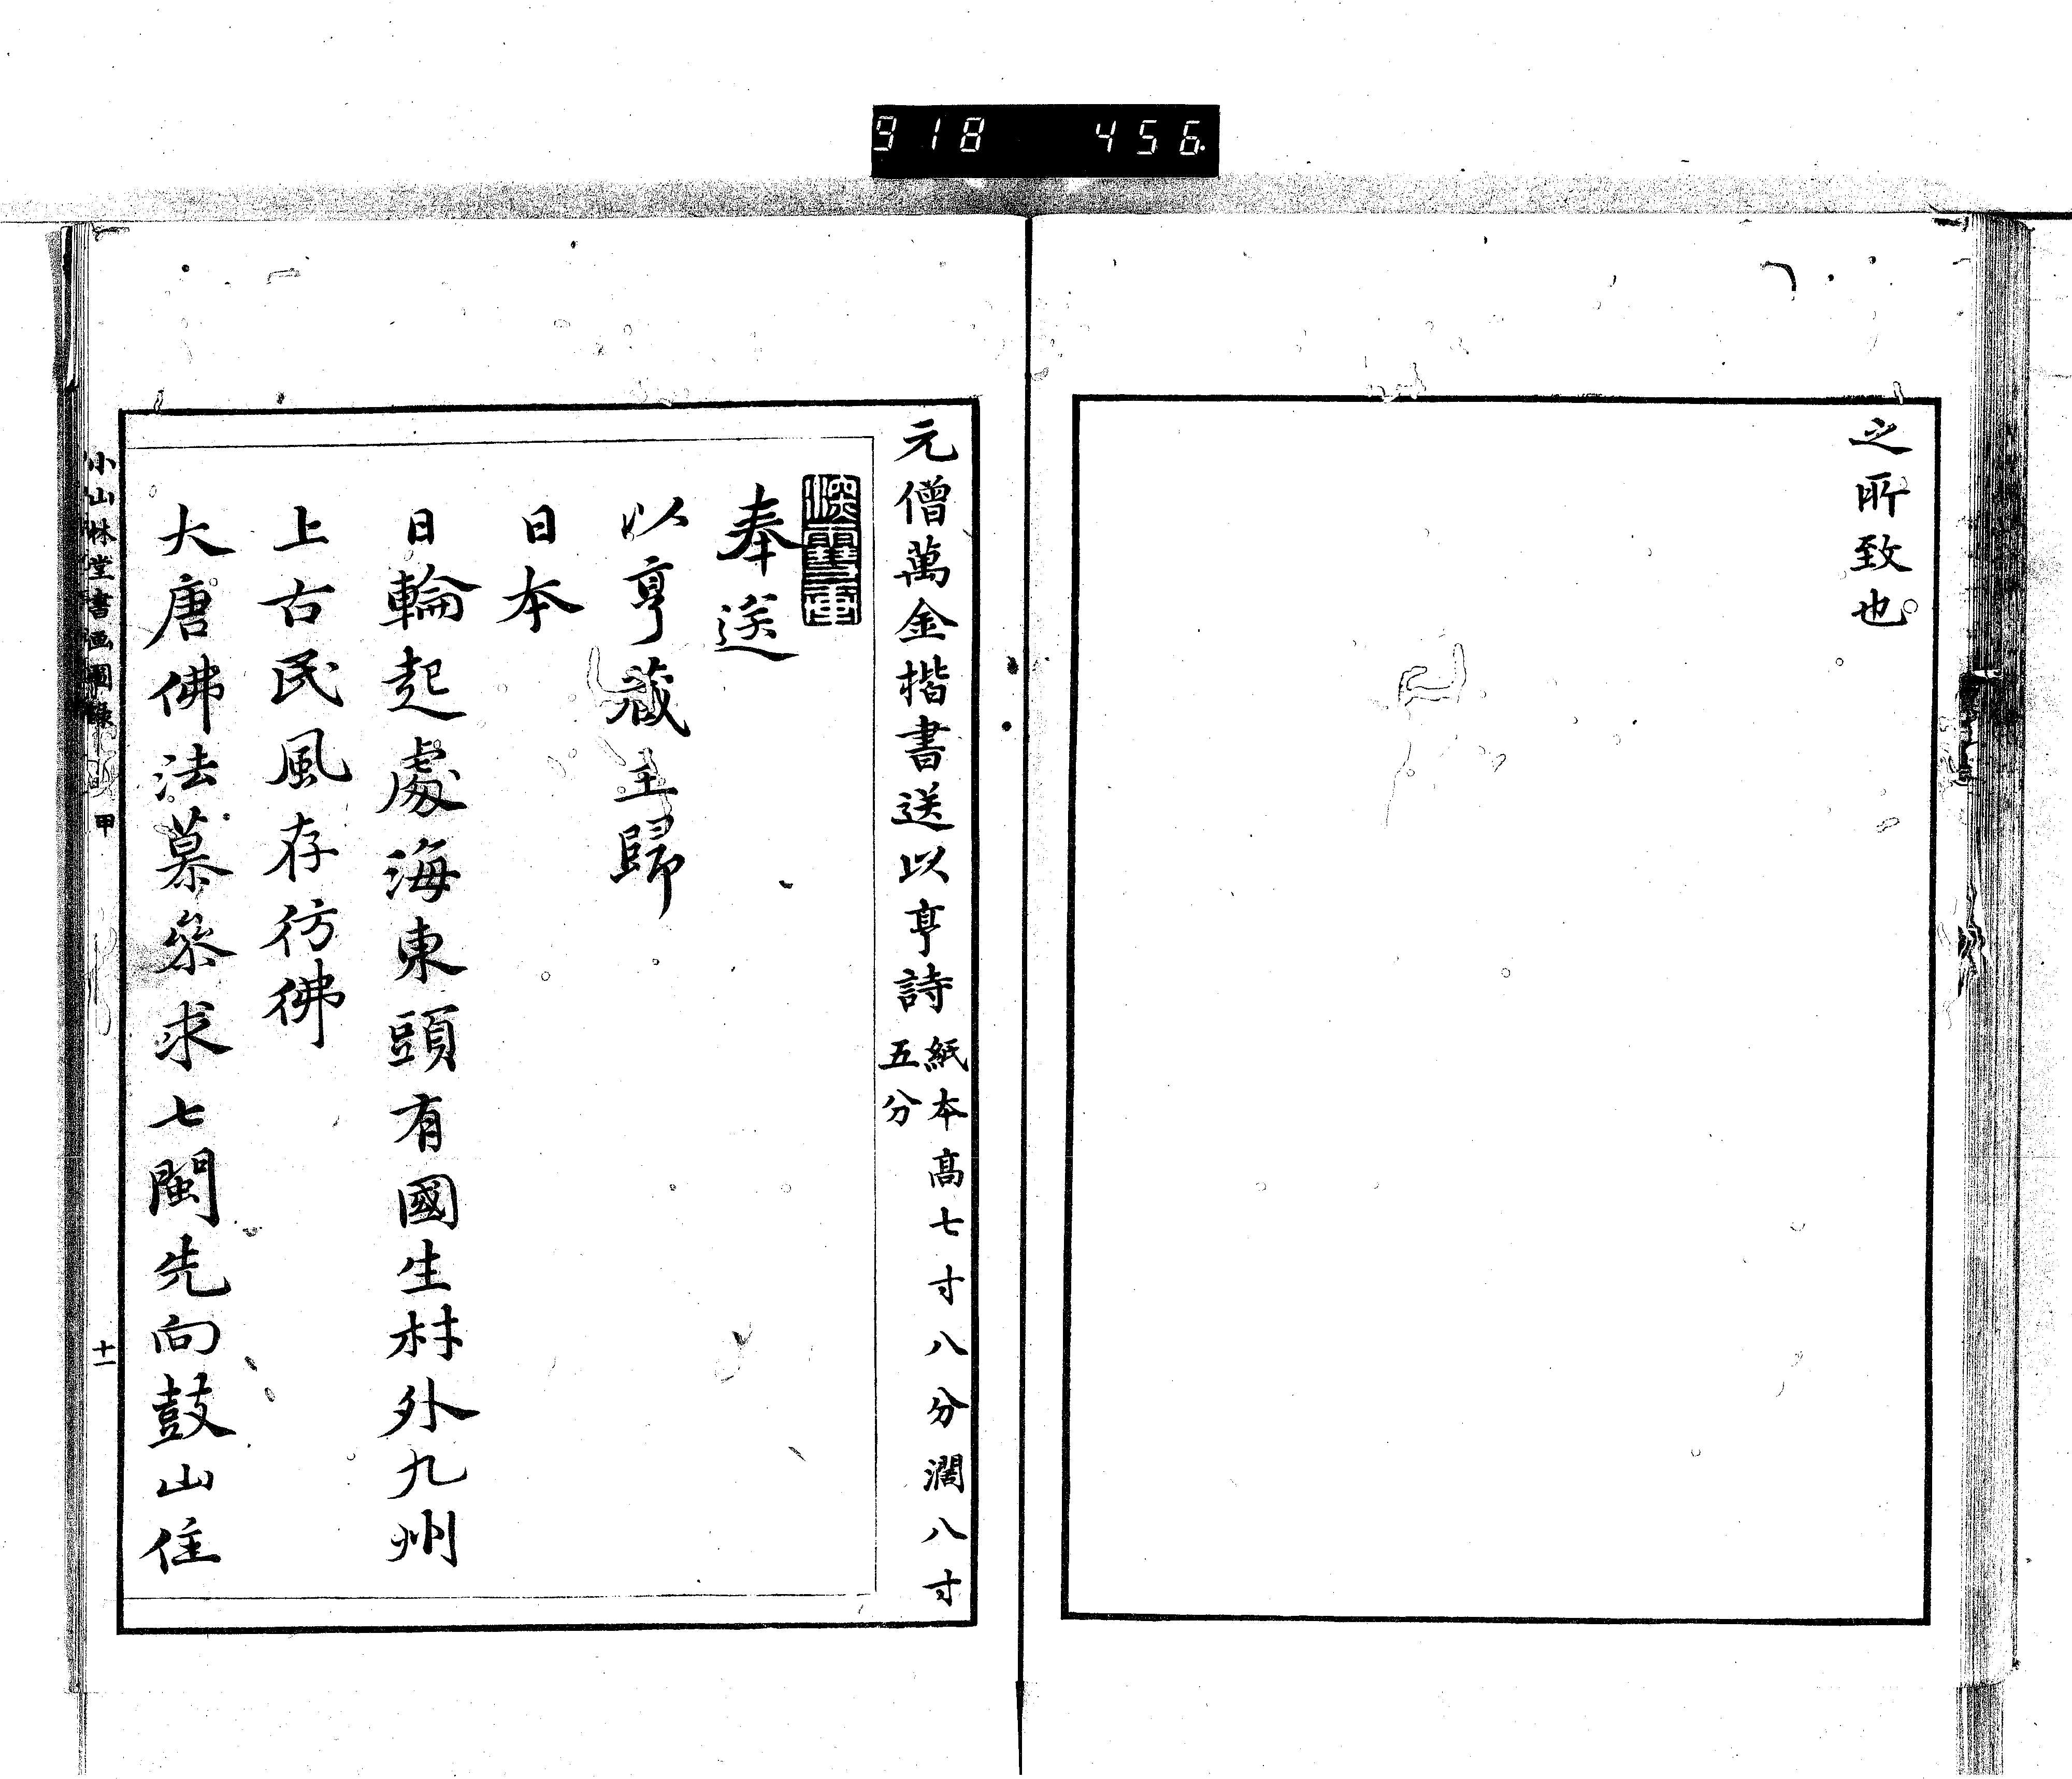 918 456
之所致也
元僧萬金楷書送以亨詩 紙本高七寸八分濶八寸
五分
奉送
以亨藏主歸
日本
日輪起處海東頭有國生林外九州
上古民風存彷彿
大唐佛法慕參求七閩先向鼓山住
小山林堂書画圖錄 甲 十一